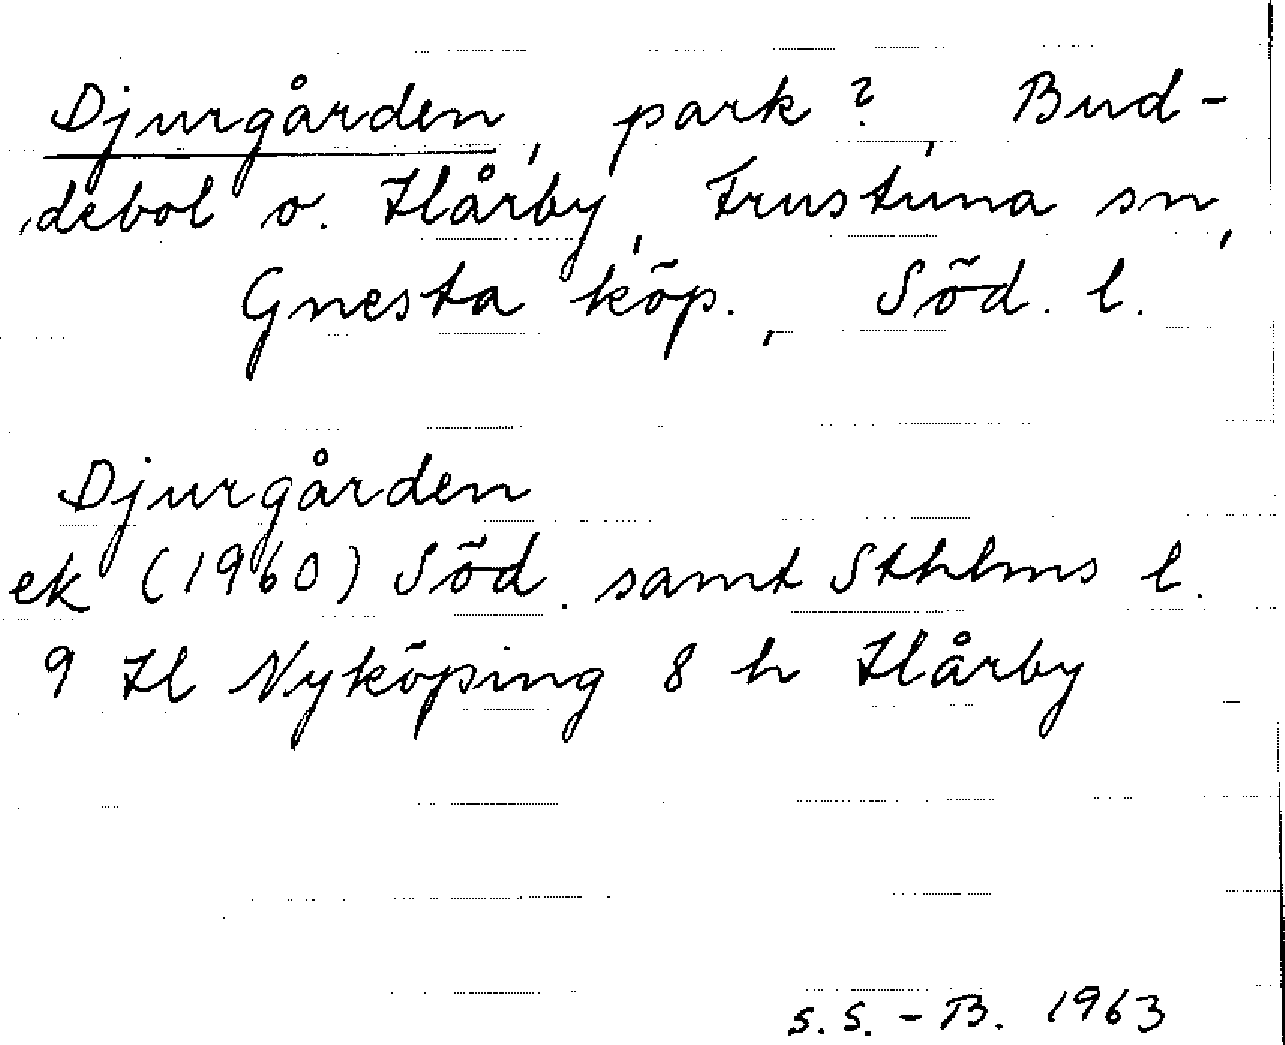 Djurgården, park?, Bud-
debol o. Hårby, Frustuna sn,
Gnesta köp., Söd. l.
Djurgården
ek (1960) Söd. samt Sthlms l.
9 H Nyköping 8 h Hårby
S.S.-B. 1963